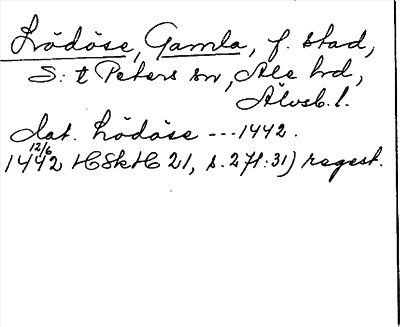 Lödöse, Gamla, f. stad,
S:t Peters sn, Ale hd,
Älvsb. l.
dat. Lödöse --- 1442.
12/6
1442 HSkH 21, s. 27f: 31) regest.